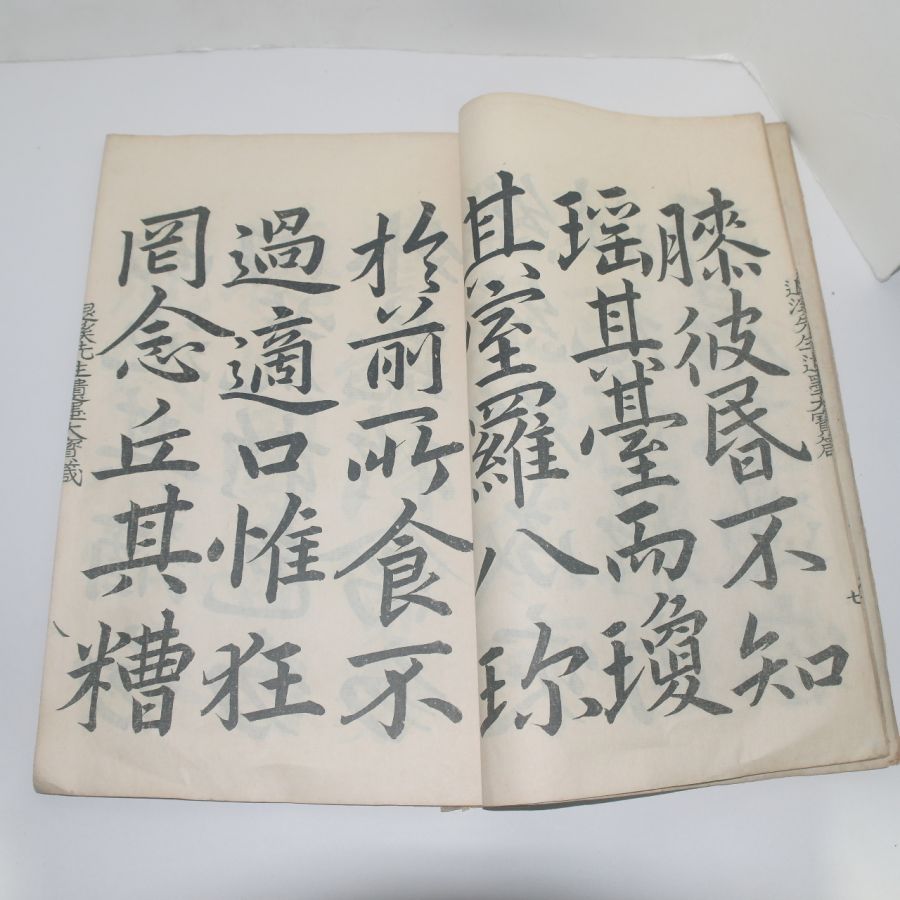 退溪先生遺墨大寶箴
七
膝彼昏不知
瑶其臺而瓊
其室羅八珍
於前所食不
過適口惟狂
罔念丘其糟
退溪先生遺墨大寶箴
八